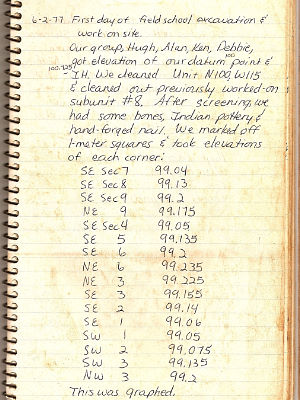 6-2-77 First day of field school excavation &
work on site.
Our group, Hugh, Alan, Ken, Debbie,
got elevation of our datum point &
100
100.725
- I.H. We cleaned Unit N100, W115
& cleaned out previously worked-on
subunit #8. After screening, we
had some bones, Indian pottery &
hand-forged nail. We marked off
1-meter squares & took elevations
of each corner:
SE Sec 7 99.04
SE Sec 8 99.13
SE Sec 9 99.2
NE 9 99.175
SE Sec 4 99.05
SE 5 99.135
SE 6 99.2
NE 6 99.235
NE 3 99.225
SE 3 99.155
SE 2 99.14
SE 1 99.06
SW 1 99.05
SW 2 99.075
SW 3 99.135
NW 3 99.2
This was graphed.